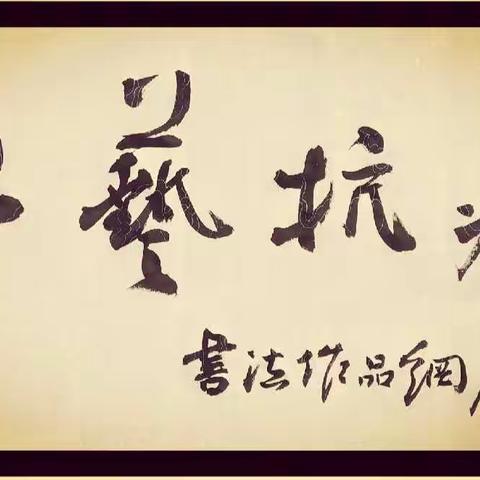 藝抗
書法作品網